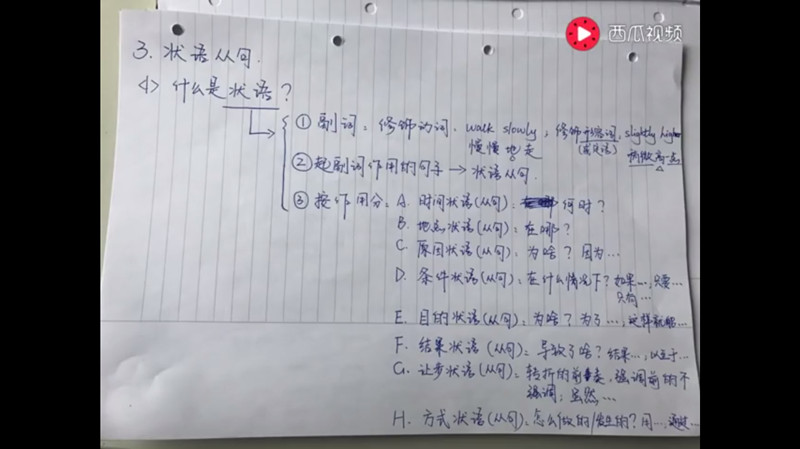 西瓜视频
3. 状语从句.
<1> 什么是状语？
① 副词：修饰动词. walk slowly，修饰形容词. slightly higher
慢慢地走 (或定语) 稍微高一点
② 起副词作用的句子 → 状语从句.
③ 按作用分：A. 时间状语(从句)：何时？
B. 地点状语(从句)：在哪？
C. 原因状语(从句)：为啥？因为…
D. 条件状语(从句)：在什么情况下？如果…，只要…
只有…
E. 目的状语(从句)：为啥？为了…，这样就能…
F. 结果状语(从句)：导致了啥？结果…，以至于…
G. 让步状语(从句)：转折的前奏，强调前的不
强调；虽然…
H. 方式状语(从句)：怎么做的/发生的？用…，通过…